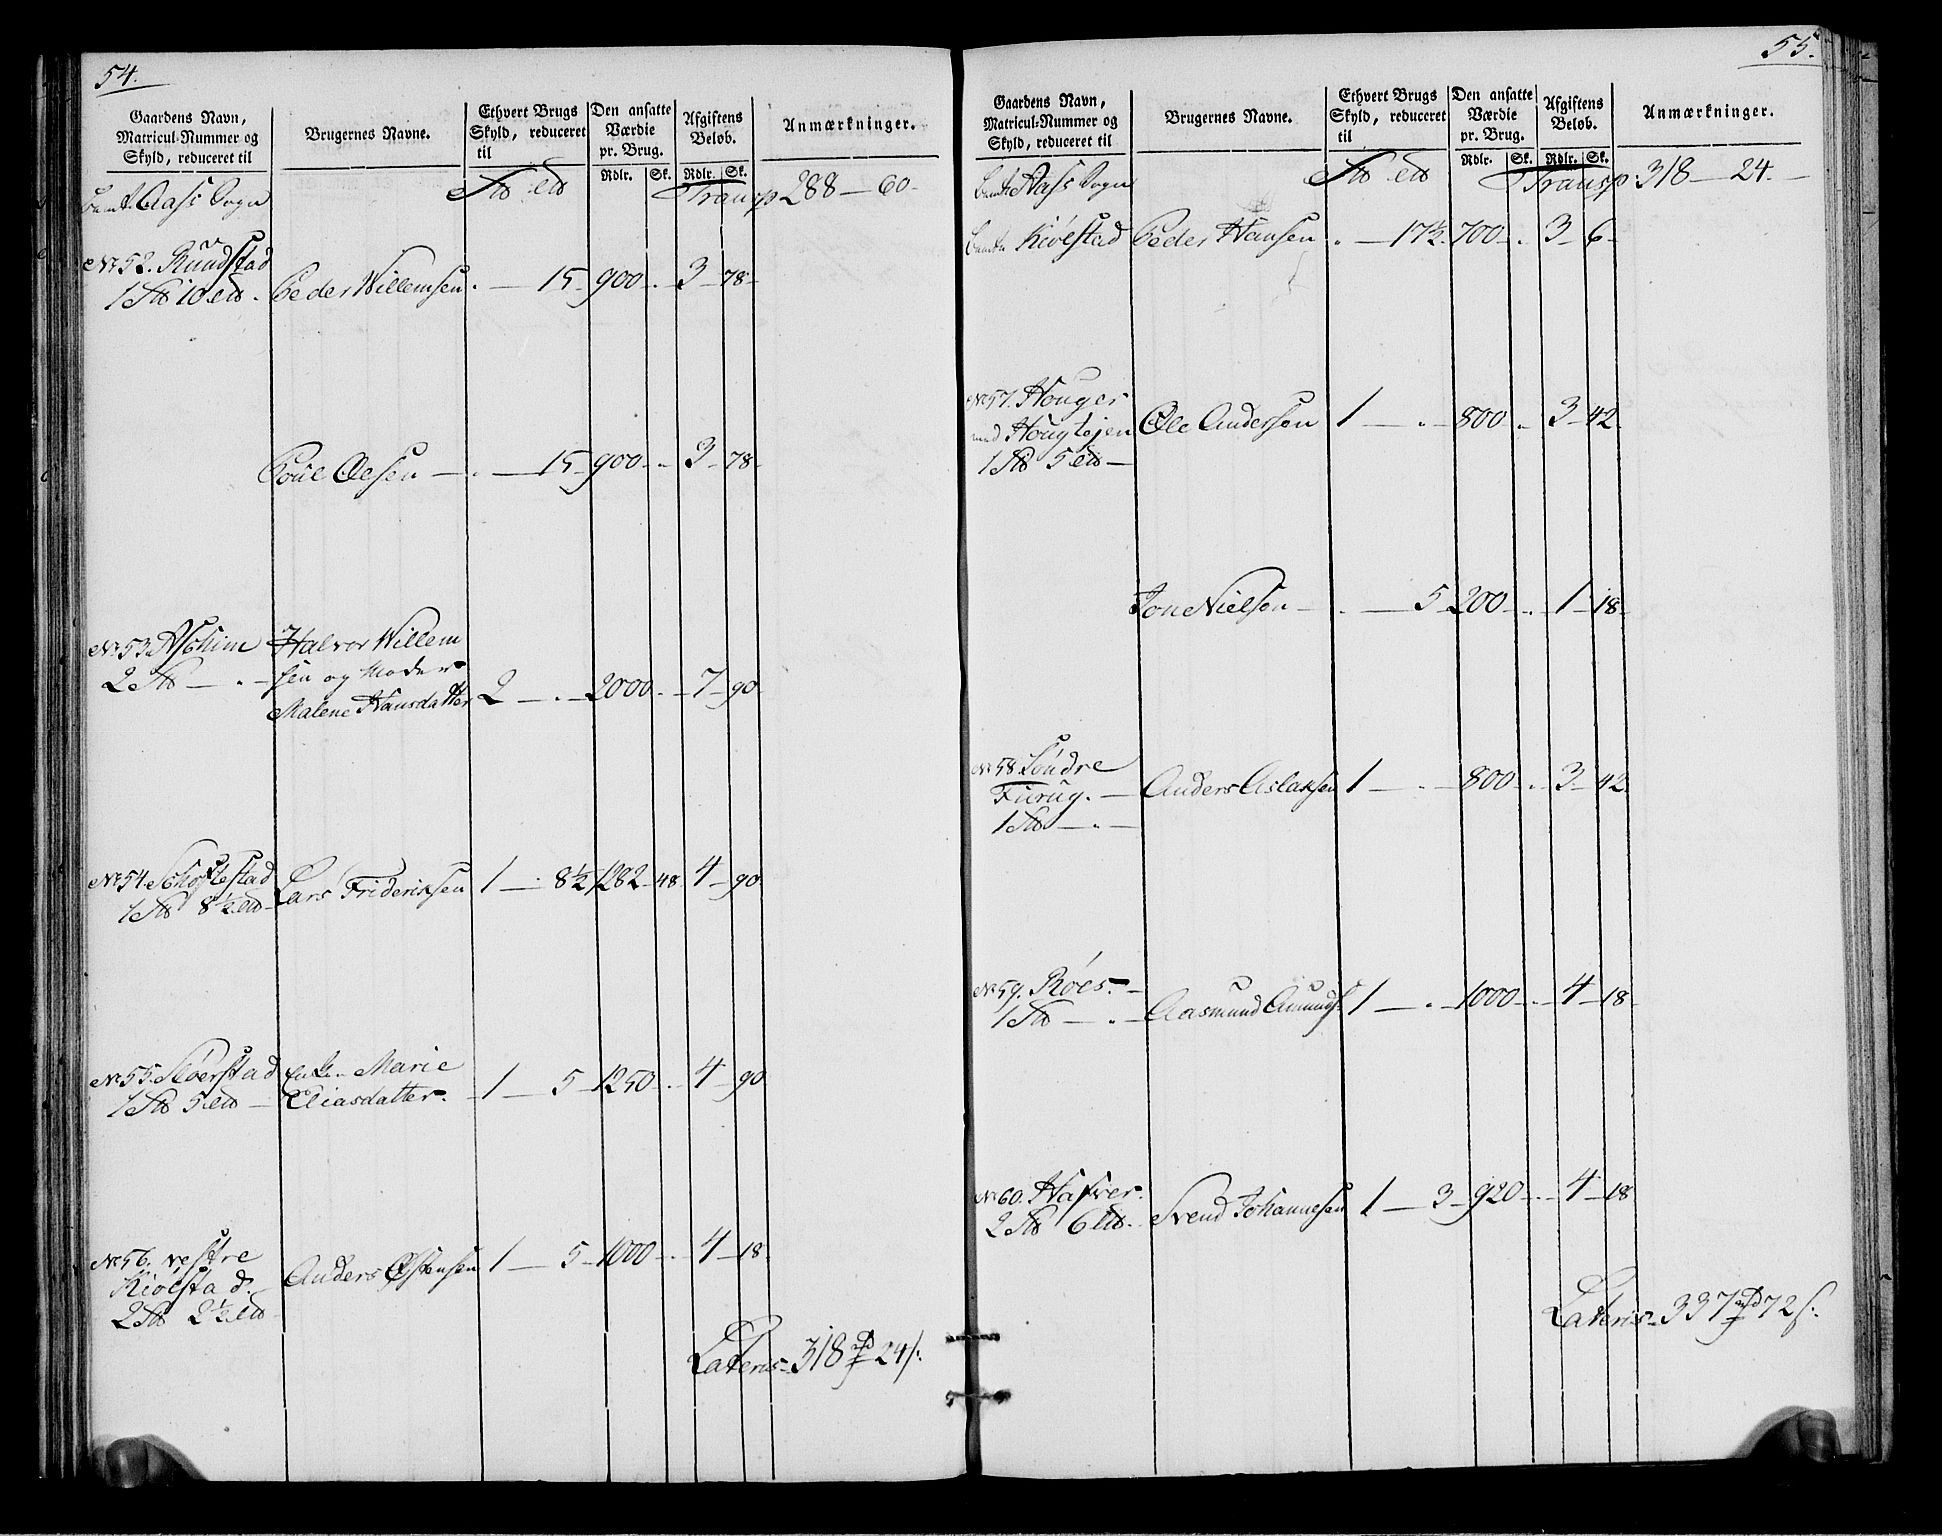 54.
Gaardens Navn, Matricul-Nummer og Skyld, reduceret til
Brugernes Navne.
Ethvert Brugs Skyld, reduceret til
Den ansatte Værdie pr. Brug.
Afgiftens Beløb.
Anmærkninger.
Rdlr. Sk. Rdlr. Sk.
Aass Sogn Transp 288 - 60 -
No 52. Ruudstad
Peder Willemsen . - 15 - 900 - . - 3 - 78 -
Poul Olsen - . - 15 - 900 - . - 3 - 78 -
No 53. Aschim Halvor Willem
sen og Moder
Malene Hansdatter 2 - . - 2000 - . - 7 - 90
No 54. Schoftestad
Lars Frideriksen 1 - . 8½ 1282 - 48 - 4 - 90
No 55. Sloerstad Enke Marie
Eliasdatter. - 1 - 5 - 1250 - . - 4 - 90
No 56. vestre
Kiølstad.
Anders Østensen 1 - 5 - 1000 - . - 4 - 18 -
Lateris - 318 24 s:
55.
Gaardens Navn, Matricul-Nummer og Skyld, reduceret til
Brugernes Navne.
Ethvert Brugs Skyld, reduceret til
Den ansatte Værdie pr. Brug.
Afgiftens Beløb.
Anmærkninger.
Rdlr. Sk. Rdlr. Sk.
Aass Sogn Transp 318 - 24. -
Kiølstad Peder Hansen . - 17½ 700 - . 3 - 6 -
No 57. Houger
Ole Andersen 1 - . - 800 - . - 3 - 42
Jon Nielsen - . - 5 - 200 - . - 1 - 18 -
No 58. Søndre
Furug. - Anders Aslaksen 1 - . - 800 - . - 3 - 42
No 59. Røes. -
Aasmund Amunds: 1 - . - 1000 - . - 4 - 18 -
No 60. Hafver.
Svend Johannesen 1 - 3 - 920 - . - 4 - 18
Lateris - 337 72 s: